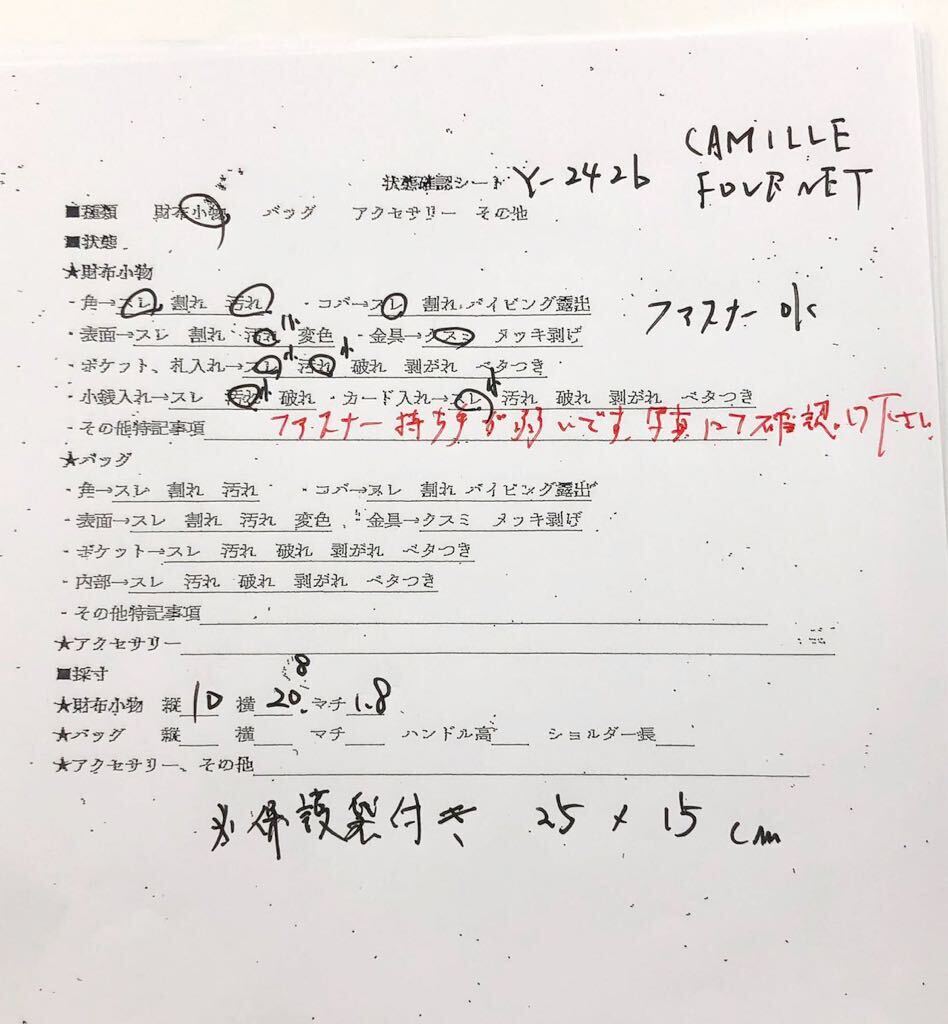 CAMILLE
FOURNET
状態確認シート Y-2426
■種類 財布小物 バッグ アクセサリー その他
■状態
★財布小物
・角→スレ 割れ 汚れ ・コバ→スレ 割れ パイピング露出
ファスナー ok
・表面→スレ 割れ 汚れ 小 変色 ・金具→クスミ メッキ剥げ
・ポケット、札入れ→スレ 小 汚れ 小 破れ 剥がれ ベタつき
・小銭入れ→スレ 汚れ 小 破れ ・カード入れ→スレ 小 汚れ 破れ 剥がれ ベタつき
・その他特記事項 ファスナー持ち手が弱いです。写真にて確認して下さい。
★バッグ
・角→スレ 割れ 汚れ ・コバ→スレ 割れ パイピング露出
・表面→スレ 割れ 汚れ 変色 ・金具→クスミ メッキ剥げ
・ポケット→スレ 汚れ 破れ 剥がれ ベタつき
・内部→スレ 汚れ 破れ 剥がれ ベタつき
・その他特記事項
★アクセサリー
■採寸
★財布小物 縦 10 横 20.8 マチ 1.8
★バッグ 縦 横 マチ ハンドル高 ショルダー長
★アクセサリー、その他
※保護袋付き 25 × 15 cm